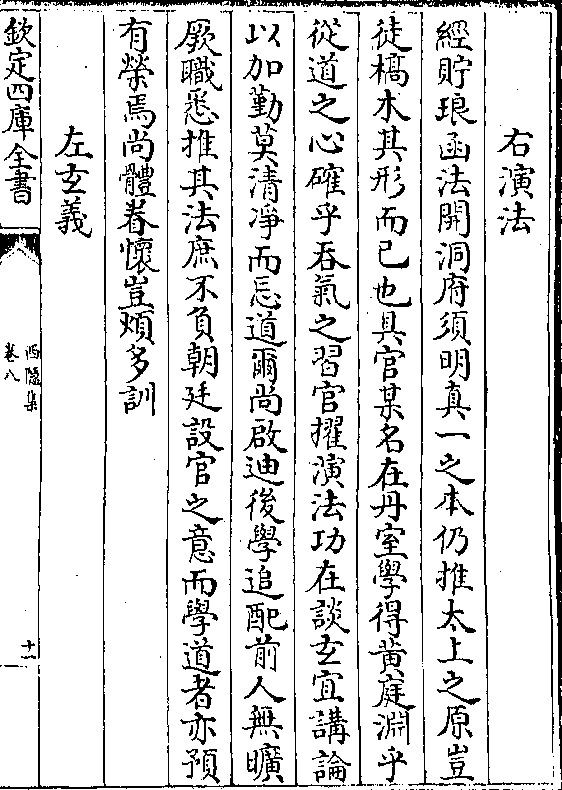 右演法
經貯琅函法開洞府須明真一之本仍推太上之原豈
徒槁木其形而已也具官某名在丹室學得黄庭淵乎
從道之心確乎吞氣之習官擢演法功在談玄宜講論
以加勤莫清淨而忘道爾尚啟迪後學追配前人無曠
厥職悉推其法庶不負朝廷設官之意而學道者亦預
有榮焉尚體眷懷豈煩多訓
左玄義
欽定四庫全書
西隱集
卷八
十一